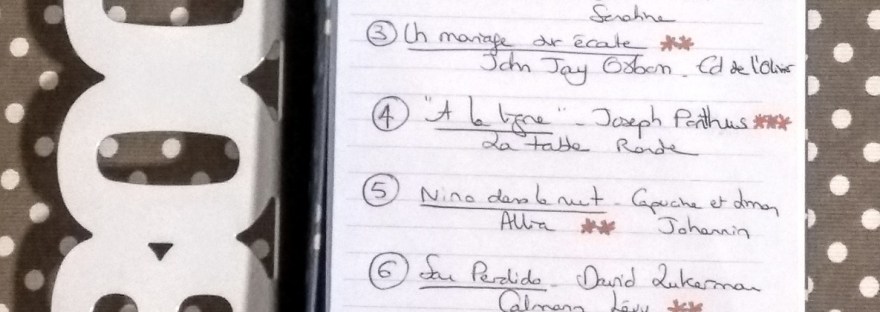 ③ Un mariage sur écoute **
John Jay Osborn. Ed de l'Olivier
④ "A la ligne" - Joseph Ponthus ***
La table Ronde
⑤ Nino dans la nuit - Capucine et Simon
Allia ** Johannin
⑥ San Perdido - David Zukerman
Calmann Lévy **